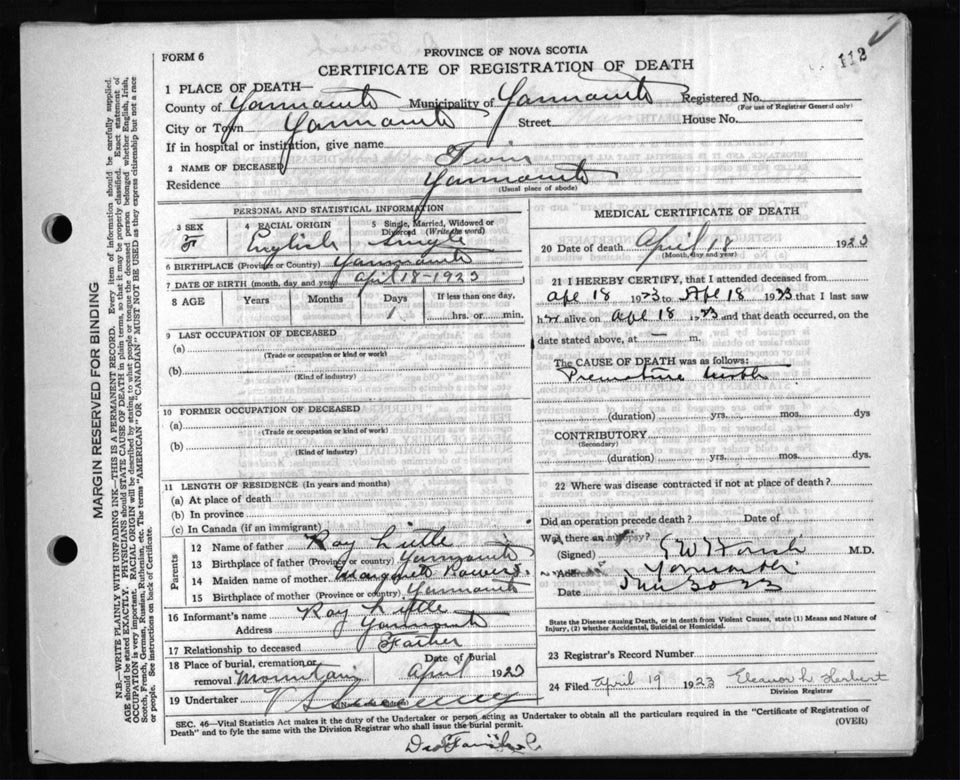 112
FORM 6
PROVINCE OF NOVA SCOTIA
CERTIFICATE OF REGISTRATION OF DEATH
MARGIN RESERVED FOR BINDING
N.B.—WRITE PLAINLY WITH UNFADING INK—THIS IS A PERMANENT RECORD. Every item of information should be carefully supplied.
AGE should be stated EXACTLY. PHYSICIANS should STATE CAUSE OF DEATH in plain terms, so that it may be properly classified. Exact statement of
OCCUPATION is very important. RACIAL ORIGIN will be described by stating to what people or tongue the deceased person belonged whether English, Irish,
Scotch, French, German, Russian, Ruthenian, etc. The terms "AMERICAN" OR "CANADIAN" MUST NOT BE USED as they express citizenship but not a race
or people. See instructions on back of Certificate.
1 PLACE OF DEATH—
County of Yarmouth Municipality of Yarmouth Registered No.
(For use of Registrar General only)
City or Town Yarmouth Street House No.
If in hospital or institution, give name
2 NAME OF DECEASED Twin
Residence Yarmouth
(Usual place of abode)
PERSONAL AND STATISTICAL INFORMATION
3 SEX 4 RACIAL ORIGIN 5 Single, Married, Widowed or
Divorced (Write the word)
F English Single
6 BIRTHPLACE (Province or Country) Yarmouth
7 DATE OF BIRTH (month, day and year) April 18-1923
8 AGE Years Months Days If less than one day,
1 hrs. or min.
9 LAST OCCUPATION OF DECEASED
(a)
(Trade or occupation or kind or work)
(b)
(Kind of industry)
10 FORMER OCCUPATION OF DECEASED
(a)
(Trade or occupation or kind of work)
(b)
(Kind of industry)
11 LENGTH OF RESIDENCE (In years and months)
(a) At place of death
(b) In province
(c) In Canada (if an immigrant)
Parents
12 Name of father Roy Little
13 Birthplace of father (Province or country) Yarmouth
14 Maiden name of mother Margaret Powers
15 Birthplace of mother (Province or country) Yarmouth
16 Informant's name Roy Little
Address Yarmouth
17 Relationship to deceased Father
18 Place of burial, cremation or Date of burial
removal Mountain April 1923
19 Undertaker
MEDICAL CERTIFICATE OF DEATH
20 Date of death April 18 1923
(Month, day and year)
21 I HEREBY CERTIFY, that I attended deceased from
Apl 18 1923 to Apl 18 1923 that I last saw
her alive on Apl 18 1923 and that death occurred, on the
date stated above, at — m.
The CAUSE OF DEATH was as follows:
Premature birth
(duration) yrs. mos. dys
CONTRIBUTORY
(Secondary)
(duration) yrs. mos. dys.
22 Where was disease contracted if not at place of death?
Did an operation precede death? Date of
Was there an autopsy?
(Signed) M.D.
Address Yarmouth
Date 30 23
State the Disease causing Death, or in death from Violent Causes, state (1) Means and Nature of
Injury, (2) whether Accidental, Suicidal or Homicidal.
23 Registrar's Record Number
24 Filed April 19 1923 Eleanor L Herbert
Division Registrar
SEC. 46—Vital Statistics Act makes it the duty of the Undertaker or person acting as Undertaker to obtain all the particulars required in the "Certificate of Registration of
Death" and to fyle the same with the Division Registrar who shall issue the burial permit. (OVER)